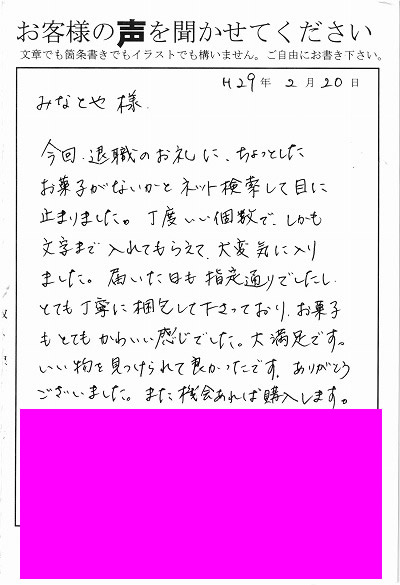 お客様の声を聞かせてください
文章でも箇条書きでもイラストでも構いません。ご自由にお書き下さい。
H29年 2月 20日
みなとや 様.
今回、退職のお礼に、ちょっとした
お菓子がないかとネット検索して目に
止まりました。丁度いい個数で、しかも
文字まで入れてもらえて、大変気に入り
ました。届いた日も指定通りでしたし、
とても丁寧に梱包して下さっており、お菓子
もとてもかわいい感じでした。大満足です。
いい物を見つけられて良かったです。ありがとう
ございました。また機会あれば購入します。